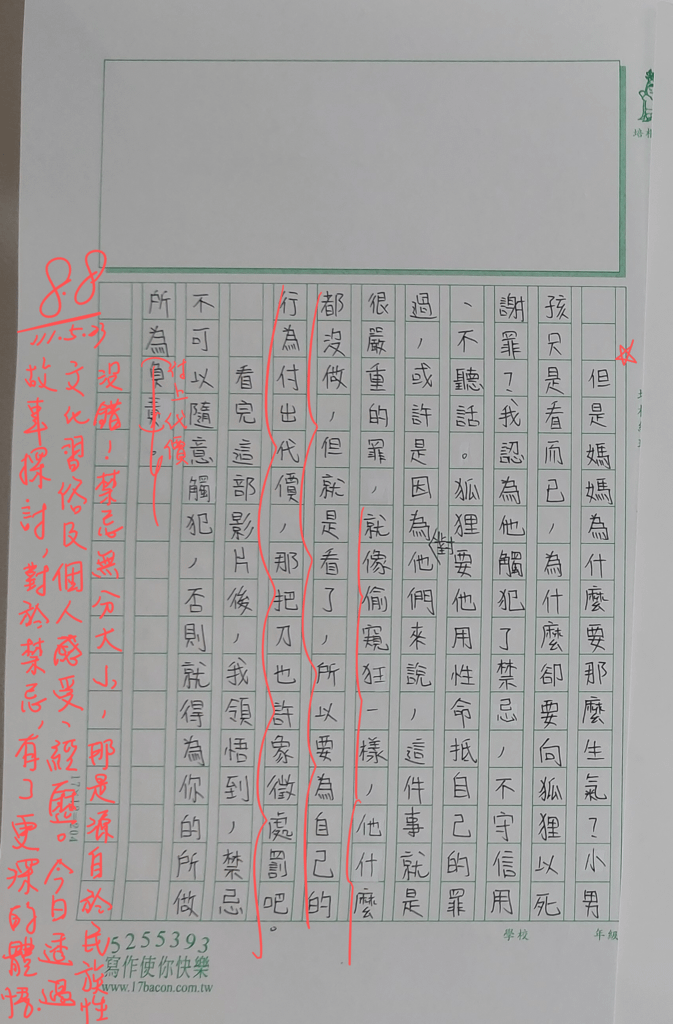 但是媽媽為什麼要那麼生氣？小男
孩只是看而已，為什麼卻要向狐狸以死
謝罪？我認為他觸犯了禁忌，不守信用
、不聽話。狐狸要他用性命抵自己的罪
過，或許是因為對他們來說，這件事就是
很嚴重的罪，就像偷窺狂一樣，他什麼
都沒做，但就是看了，所以要為自己的
行為付出代價，那把刀也許象徵處罰吧。
看完這部影片後，我領悟到，禁忌
不可以隨意觸犯，否則就得為你的所做
所為負責。
付上代價
88
111.5.23
沒錯！禁忌無分大小，那是源自於民族性
文化習俗及個人感受、經歷。今日透過
故事探討，對於禁忌，有了更深的體悟.
學校
年級
5255393
寫作使你快樂
www.17bacon.com.tw